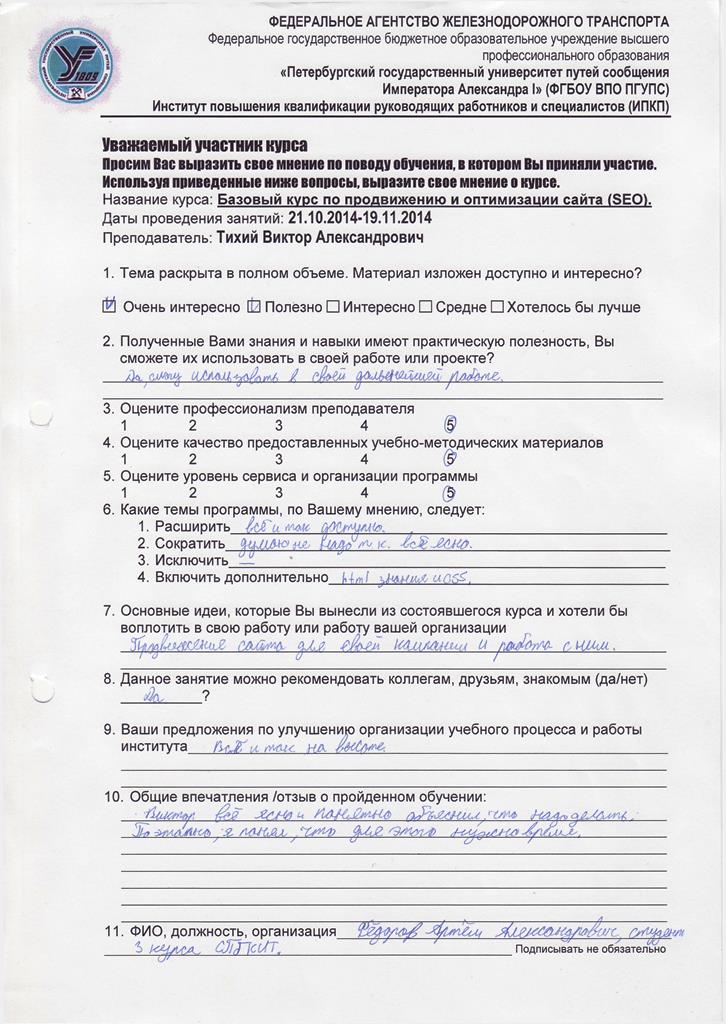 ФЕДЕРАЛЬНОЕ АГЕНТСТВО ЖЕЛЕЗНОДОРОЖНОГО ТРАНСПОРТА
Федеральное государственное бюджетное образовательное учреждение высшего
профессионального образования
«Петербургский государственный университет путей сообщения
Императора Александра I» (ФГБОУ ВПО ПГУПС)
Институт повышения квалификации руководящих работников и специалистов (ИПКП)
1809
Уважаемый участник курса
Просим Вас выразить свое мнение по поводу обучения, в котором Вы приняли участие.
Используя приведенные ниже вопросы, выразите свое мнение о курсе.
Название курса: Базовый курс по продвижению и оптимизации сайта (SEO).
Даты проведения занятий: 21.10.2014-19.11.2014
Преподаватель: Тихий Виктор Александрович
1. Тема раскрыта в полном объеме. Материал изложен доступно и интересно?
☑ Очень интересно ☑ Полезно ☐ Интересно ☐ Средне ☐ Хотелось бы лучше
2. Полученные Вами знания и навыки имеют практическую полезность, Вы
сможете их использовать в своей работе или проекте?
Да, смогу использовать в своей дальнейшей работе.
3. Оцените профессионализм преподавателя
1 2 3 4 5
4. Оцените качество предоставленных учебно-методических материалов
1 2 3 4 5
5. Оцените уровень сервиса и организации программы
1 2 3 4 5
6. Какие темы программы, по Вашему мнению, следует:
1. Расширить всё и так доступно.
2. Сократить думаю не надо т.к. всё ясно.
3. Исключить —
4. Включить дополнительно html знания и CSS.
7. Основные идеи, которые Вы вынесли из состоявшегося курса и хотели бы
воплотить в свою работу или работу вашей организации
Продвижение сайта для своей кампании и работа с ним.
8. Данное занятие можно рекомендовать коллегам, друзьям, знакомым (да/нет)
Да ?
9. Ваши предложения по улучшению организации учебного процесса и работы
института Всё и так на высоте.
10. Общие впечатления /отзыв о пройденном обучении:
Виктор всё ясно и понятно объяснил, что надо делать.
Поэтапно, я понял, что для этого нужно время.
11. ФИО, должность, организация Фёдоров Артём Александрович, студент
3 курса СПбКИТ.
Подписывать не обязательно